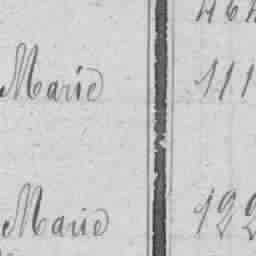 Marie 111
Marie 122